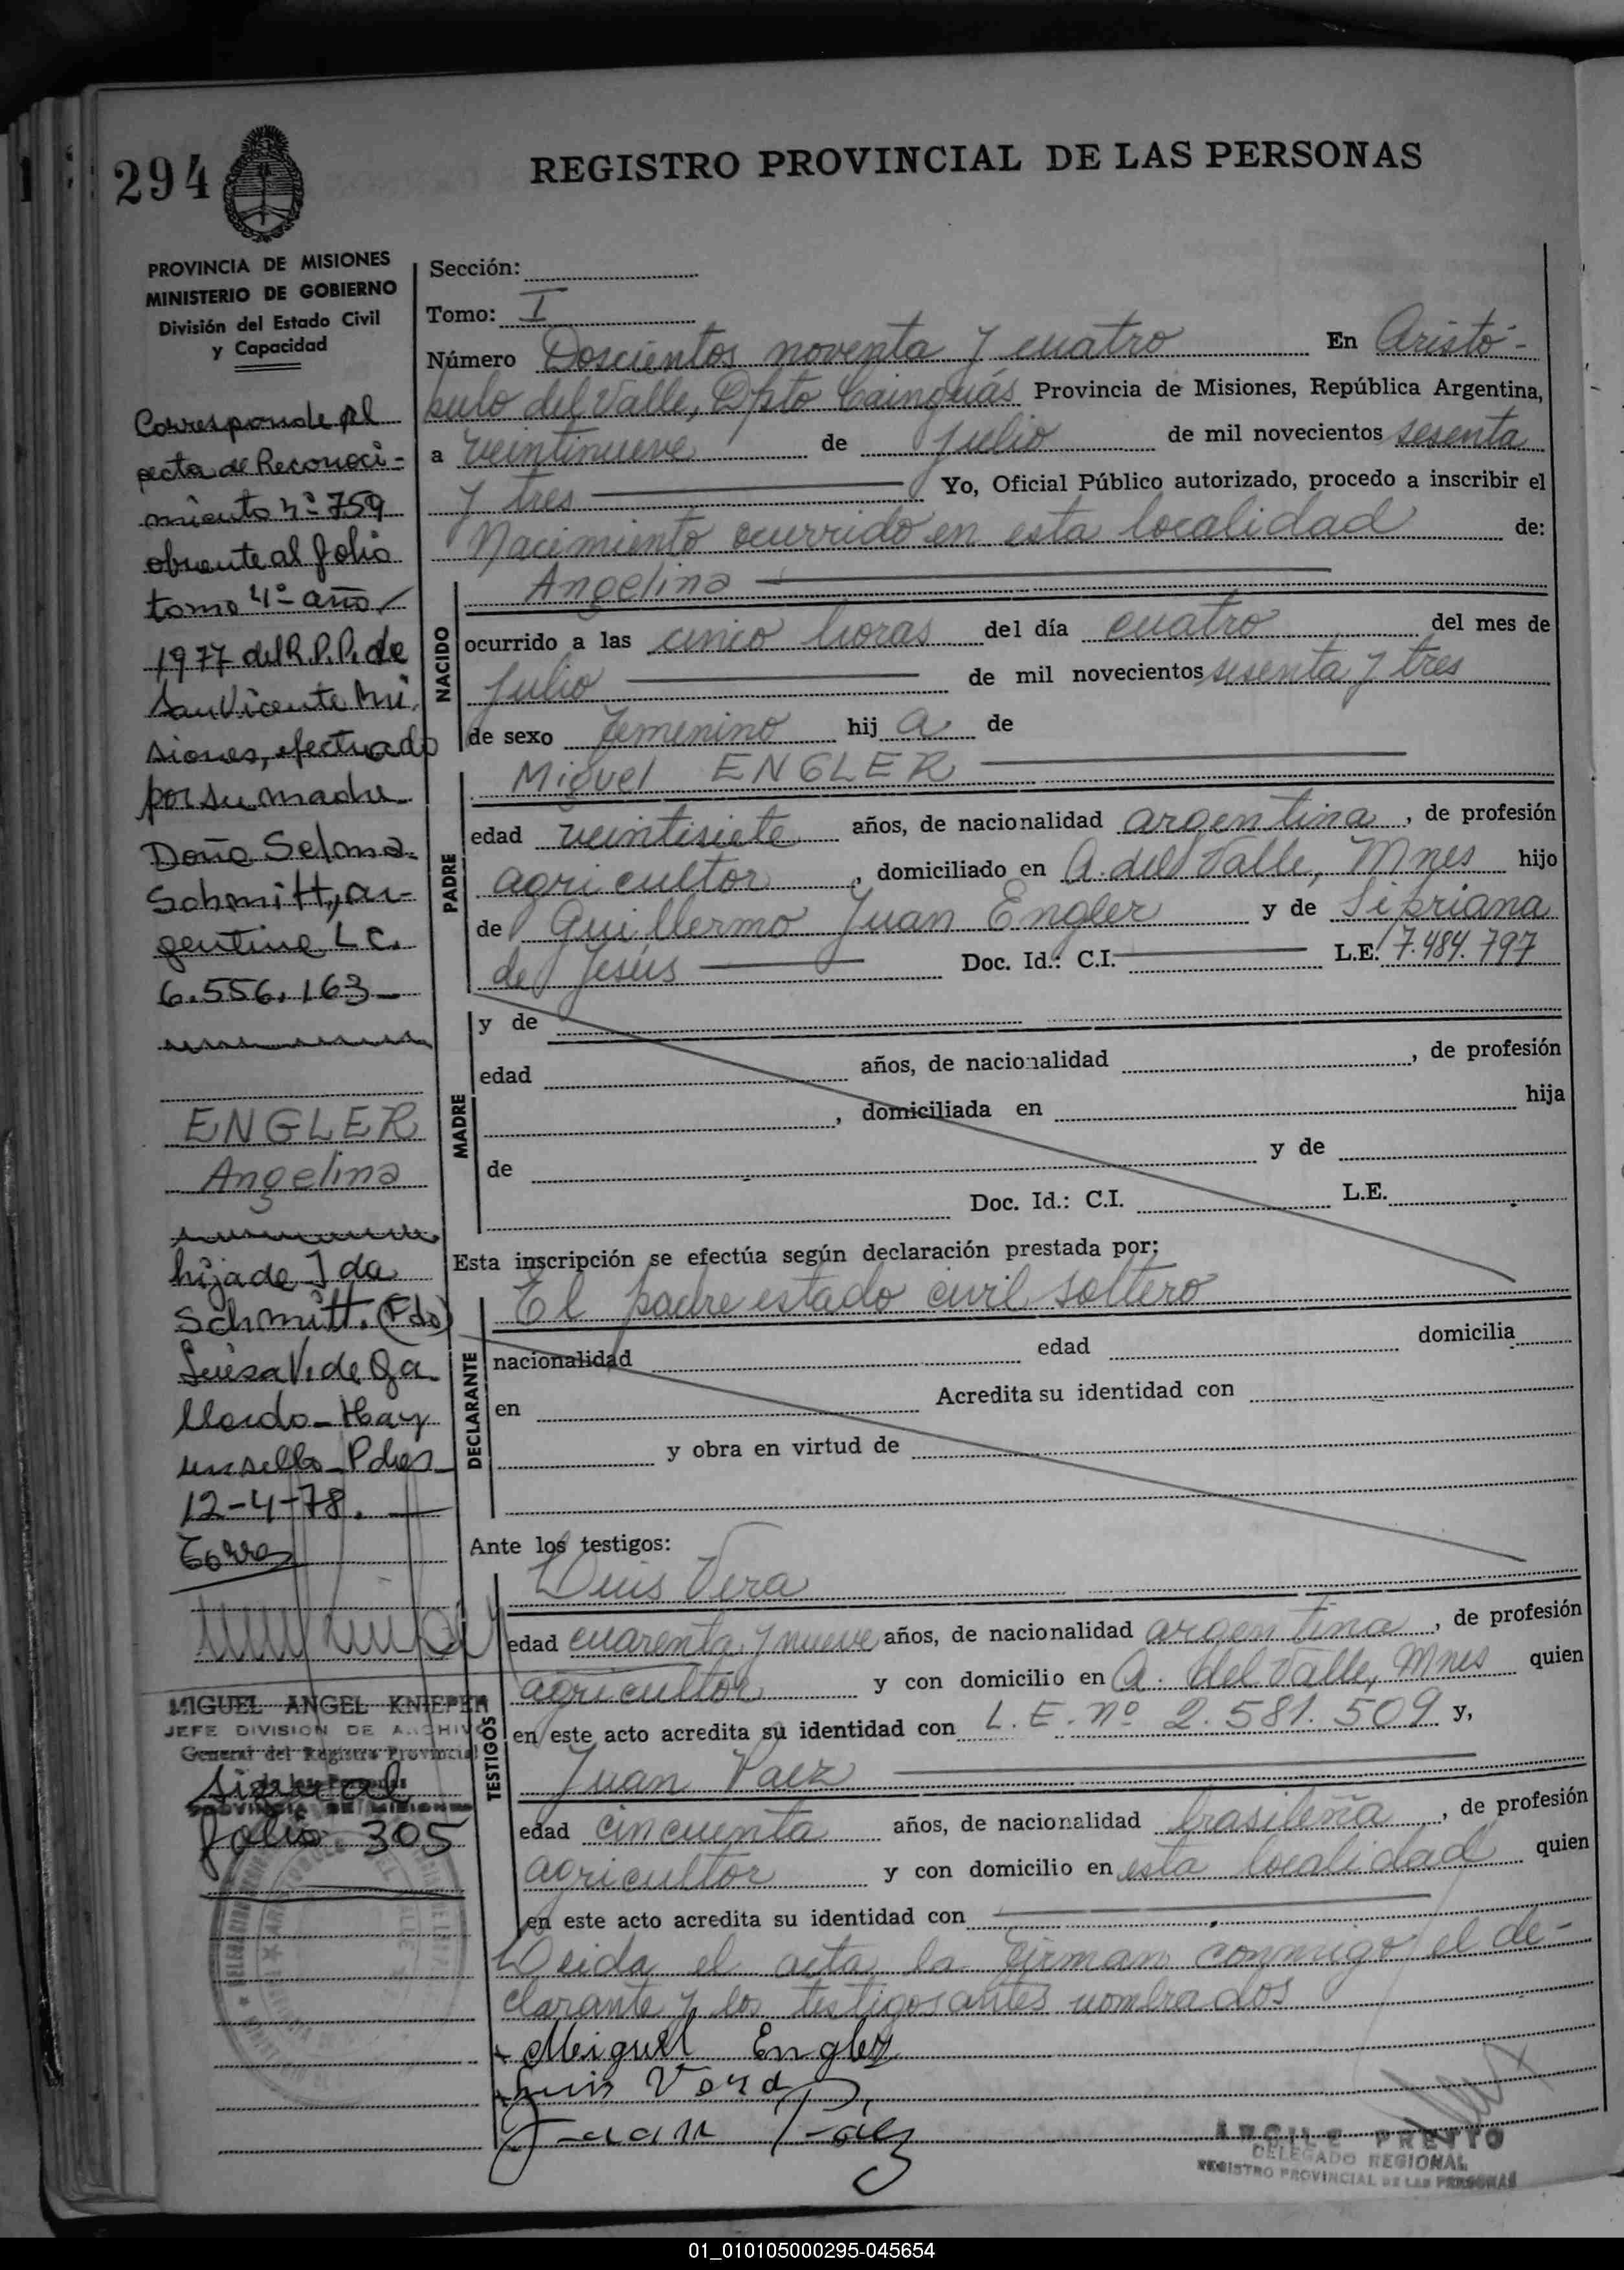 294
REGISTRO PROVINCIAL DE LAS PERSONAS
PROVINCIA DE MISIONES
MINISTERIO DE GOBIERNO
División del Estado Civil
y Capacidad
Corresponde al
acta de Reconoci-
miento Nº 759
obrante al folio
tomo 4º año
1977 del R.P.P. de
San Vicente Mi
siones, efectuado
por su madre
Doña Selma
Schmitt, ar-
gentina L C.
6.556.163
ENGLER
Angelina
hija de Ida
Schmitt. (Fdo)
Luisa V. de Ga
llardo - Hay
un sello - Pdas
12-4-78.
MIGUEL ANGEL KNIEPER
JEFE DIVISION DE ARCHIVO
General del Registro Provincial
de las Personas
PROVINCIA DE MISIONES
Sigue al
folio 305
Sección:
Tomo: I
Número Doscientos noventa y cuatro En Aristó-
bulo del Valle, Dpto Cainguás Provincia de Misiones, República Argentina,
a veintinueve de julio de mil novecientos sesenta
y tres Yo, Oficial Público autorizado, procedo a inscribir el
Nacimiento ocurrido en esta localidad de:
NACIDO
Angelina
ocurrido a las cinco horas del día cuatro del mes de
julio de mil novecientos sesenta y tres
de sexo femenino hij a de
PADRE
Miguel ENGLER
edad veintisiete años, de nacionalidad argentina, de profesión
agricultor, domiciliado en A. del Valle, Mnes hijo
de Guillermo Juan Engler y de Sipriana
de Jesús Doc. Id.: C.I. L.E. 7.484.797
MADRE
y de
edad años, de nacionalidad , de profesión
, domiciliada en hija
de y de
Doc. Id.: C.I. L.E.
Esta inscripción se efectúa según declaración prestada por:
DECLARANTE
El padre estado civil soltero
nacionalidad edad domicilia
en Acredita su identidad con
y obra en virtud de
Ante los testigos:
TESTIGOS
Luis Vera
edad cuarenta y nueve años, de nacionalidad argentina, de profesión
agricultor y con domicilio en A. del Valle, Mnes quien
en este acto acredita su identidad con L. E. Nº 2.581.509 y,
Juan Paez
edad cincuenta años, de nacionalidad brasileña, de profesión
agricultor y con domicilio en esta localidad quien
en este acto acredita su identidad con
Leida el acta la firman conmigo el de-
clarante y los testigos antes nombrados
Meiguel Engler
Luis Vera
Juan Páez
ARGILE PREYTO
DELEGADO REGIONAL
REGISTRO PROVINCIAL DE LAS PERSONAS
01_010105000295-045654